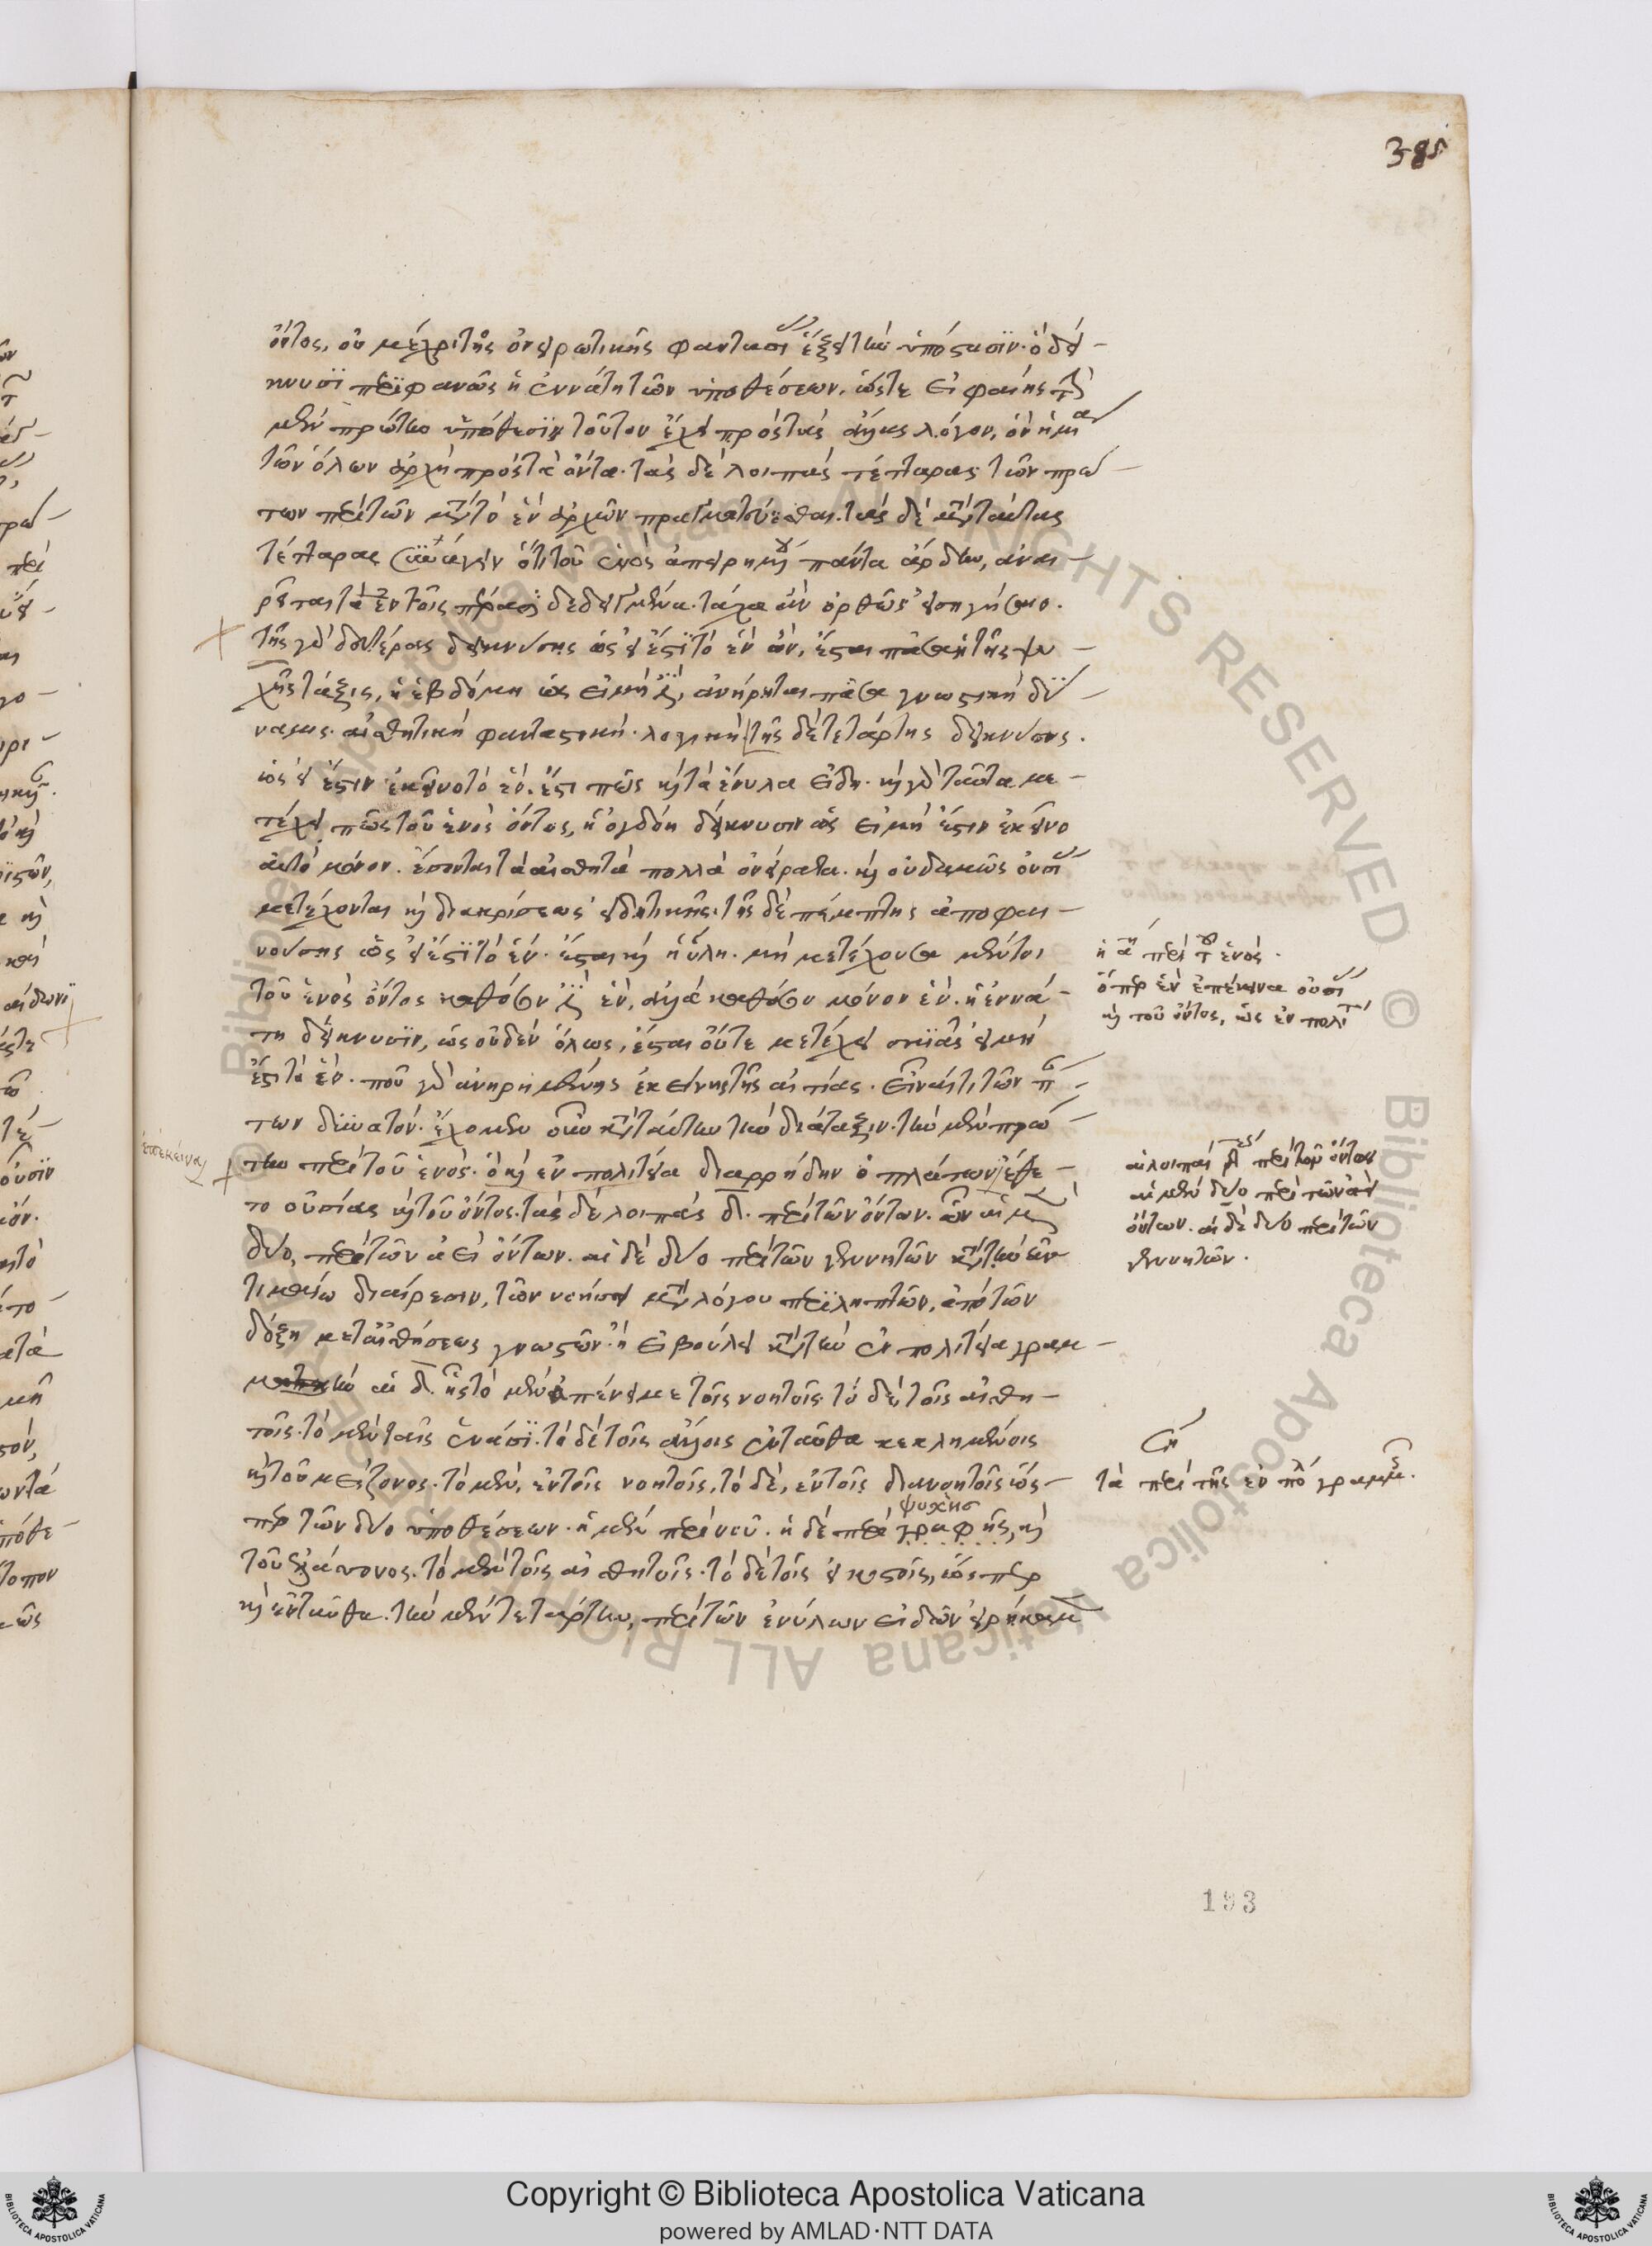 385
ὄντος, οὐ μέχρι τῆς ὀνειρωτικῆς φαντασί ἕξει τὴν ὑπόστασιν. ὁ δεί-
κνυσι περιφανῶς ἡ ἐννάτη τῶν ὑποθέσεων. ὥστε εἰ φαίης τὴν
μὲν πρώτην ὑπόθεσιν τοῦτον ἔχειν πρὸς τὰς ἄλλας λόγον, ὃν ἡ μία
τῶν ὅλων ἀρχὴ πρὸς τὰ ὄντα. τὰς δὲ λοιπὰς τέτταρας τῶν πρώ-
των περὶ τῶν μετὰ τὸ ἓν ἀρχῶν πραγματεύεσθαι. τὰς δὲ μετὰ ταύτας
τέτταρας συνάγειν ὅτι τοῦ ἑνὸς ἀνῃρημένου πάντα ἄρδην, ἀναι-
ρεῖται τὰ ἐν τοῖς δεδειγμένα. τάχα ἂν ὀρθῶς εἰσηγήσαιο.
τῆς γὰρ δευτέρας δεικνύσης ὡς εἰ ἔστι τὸ ἓν ὄν, ἔσται πᾶσα ἡ τῆς ψυ-
χῆς τάξις, ἡ ἑβδόμη ὡς εἰ μή ἐστι, ἀνῄρηται πᾶσα γνωστικὴ δύ-
ναμις. αἰσθητικὴ φανταστική. λογική. τῆς δὲ τετάρτης δεικνύσης.
ὡς εἰ ἔστιν ἐκεῖνο τὸ ἕν. ἔστι πως καὶ τὰ ἔνυλα εἴδη. καὶ γὰρ ταῦτα με-
τέχει πως τοῦ ἑνὸς ὄντος, ἡ ὀγδόη δείκνυσιν ὡς εἰ μὴ ἔστιν ἐκεῖνο
αὐτὸ μόνον. ἔσονται τὰ αἰσθητὰ πολλὰ ὀνείρατα. καὶ οὐδαμῶς οὐσί
μετέχονται καὶ διακρίσεως εἰδητικῆς. τῆς δὲ πέμπτης ἀποφαι-
νούσης ὡς εἰ ἔστι τὸ ἕν. ἔσται καὶ ἡ ὕλη. μὴ μετέχουσα μέντοι
τοῦ ἑνὸς ὄντος καθόσον ἐστὶ ἕν, ἀλλὰ καθόσον μόνον ἕν. ἡ ἐννά-
τη δείκνυσιν, ὡς οὐδὲν ὅλως, ἔσται οὔτε μετέχει σκιᾶς εἰ μὴ
ἔστι τὸ ἕν. ποῦ γὰρ ἀνῃρημένης ἐκείνης τῆς αἰτίας. εἶναί τι τῶν π-
των δυνατόν. ἔχομεν οὖν καὶ ταύτην τὴν διάταξιν. τὴν μὲν πρώ-
την περὶ τοῦ ἑνός. ὃ καὶ ἐν πολιτείᾳ διαρρήδην ὁ πλάτων ἔθε-
το οὐσίας καὶ τοῦ ὄντος. τὰς δὲ λοιπὰς δ. περὶ τῶν ὄντων. ὧν αἱ μὲν
δύο, περὶ τῶν ἀεὶ ὄντων. αἱ δὲ δύο περὶ τῶν γεννητῶν κατὰ τὴν ἐν
τιμαίῳ διαίρεσιν, τῶν νοήσει μετὰ λόγου περιληπτῶν, ἀπὸ τῶν
δόξῃ μετ' αἰσθήσεως γνωστῶν. ἢ εἰ βούλει κατὰ τὴν ἐν πολιτείᾳ γραμ-
μὴν αἱ δ. ἧς τὸ μὲν ἀπένειμε τοῖς νοητοῖς. τὸ δὲ τοῖς αἰσθη-
τοῖς. τὸ μὲν ταῖς ἑνάσι. τὸ δὲ τοῖς ἄλλοις ἐνταῦθα κεκλημένοις
καὶ τοῦ μείζονος. τὸ μὲν, ἐν τοῖς νοητοῖς, τὸ δὲ, ἐν τοῖς διανοητοῖς ὡς-
περ τῶν δύο ὑποθέσεων. ἡ μὲν περὶ νοῦ. ἡ δὲ περὶ γραφῆς, καὶ
ψυχῆς
τοῦ ἐλάττονος. τὸ μὲν τοῖς αἰσθητοῖς. τὸ δὲ τοῖς εἰκαστοῖς, ὥσπερ
καὶ ἐνταῦθα. τὴν μὲν τετάρτην, περὶ τῶν ἐνύλων εἰδῶν εἰρήκαμεν
ἐπέκεινα
ἡ α περὶ τοῦ ἑνός.
ὅπερ ἓν ἐπέκεινα οὐσί
καὶ τοῦ ὄντος, ὡς ἐν πολι
αἱ λοιπαὶ δ περὶ τοῦ ὄντος
αἱ μὲν δύο περὶ τῶν ἀεὶ
ὄντων. αἱ δὲ δύο περὶ τῶν
γεννητῶν.
ση
τὰ περὶ τῆς ἐν πο γραμμῆς.
193
Copyright © Biblioteca Apostolica Vaticana
powered by AMLAD·NTT DATA